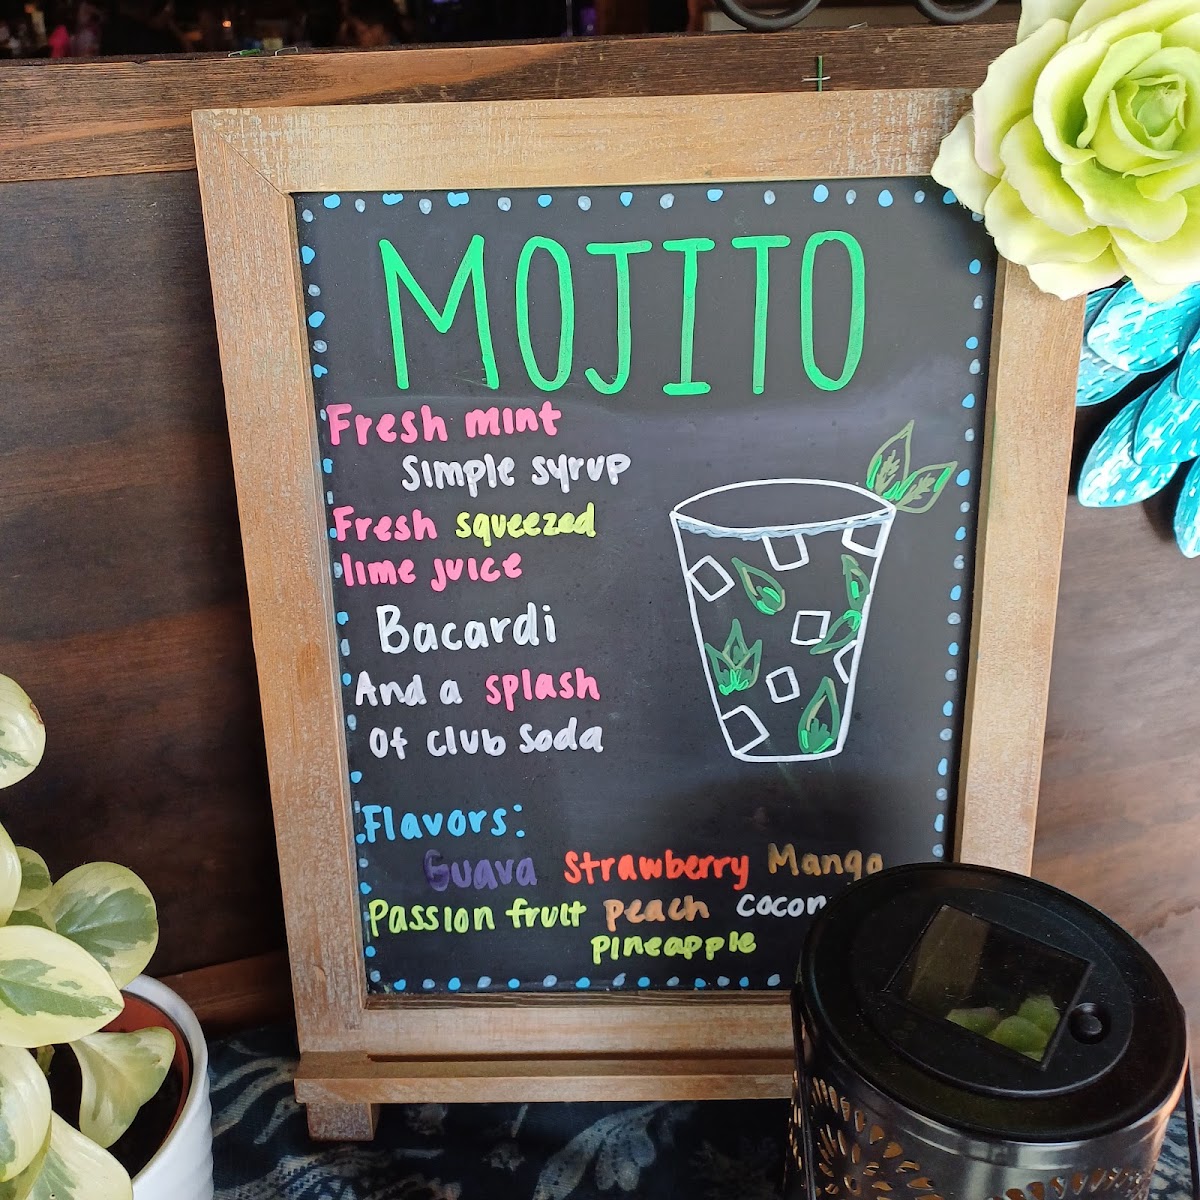 MOJITO
Fresh mint
simple syrup
Fresh squeezed
lime juice
Bacardi
And a splash
Of club soda
Flavors:
Guava Strawberry Mango
Passion fruit peach
pineapple